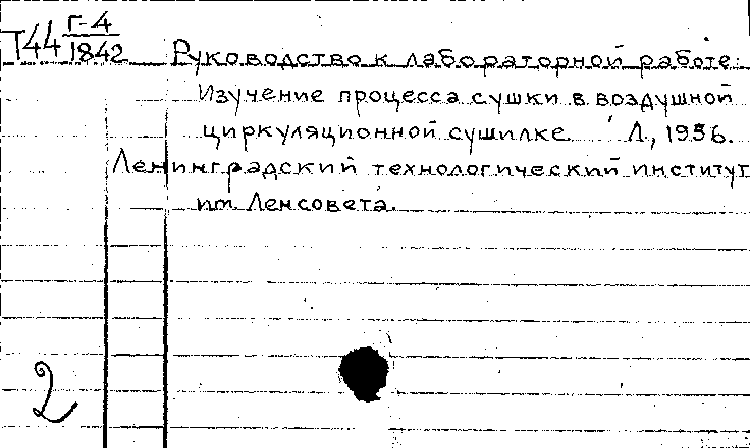 Т44 Г-4/1842
Руководство к лабораторной работе:
Изучение процесса сушки в воздушной
циркуляционной сушилке Л., 1956.
Ленинградский технологический институт
им Ленсовета.
2